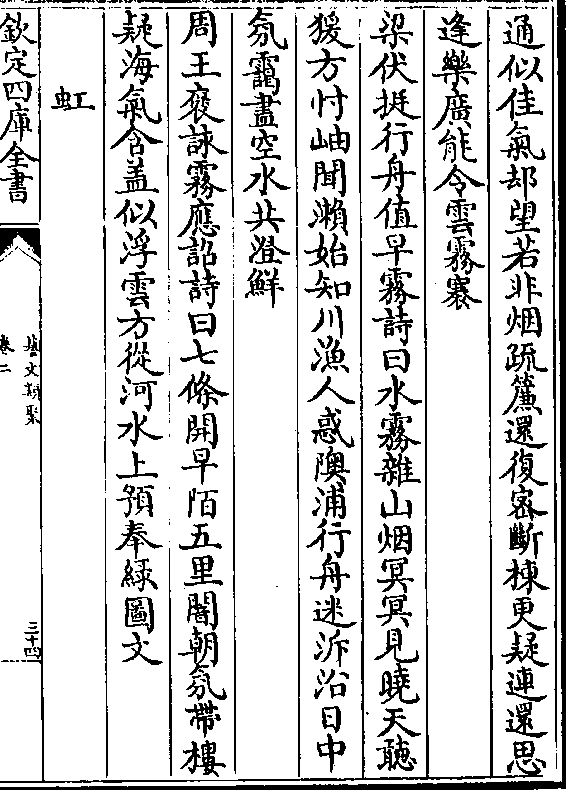 通似佳氣却望若非烟疏簾還復密斷棟更疑連還思
逢樂廣能令雲霧褰
梁伏挺行舟值早霧詩曰水霧雜山烟冥冥見曉天聽
猨方忖岫聞瀨始知川漁人惑隩浦行舟迷泝沿日中
氛靄盡空水共澄鮮
周王褒詠霧應詔詩曰七條開早陌五里闇朝氛帶樓
疑海氣含盖似浮雲方從河水上預奉緑圖文
虹
欽定四庫全書
藝文類聚
卷二
三十四